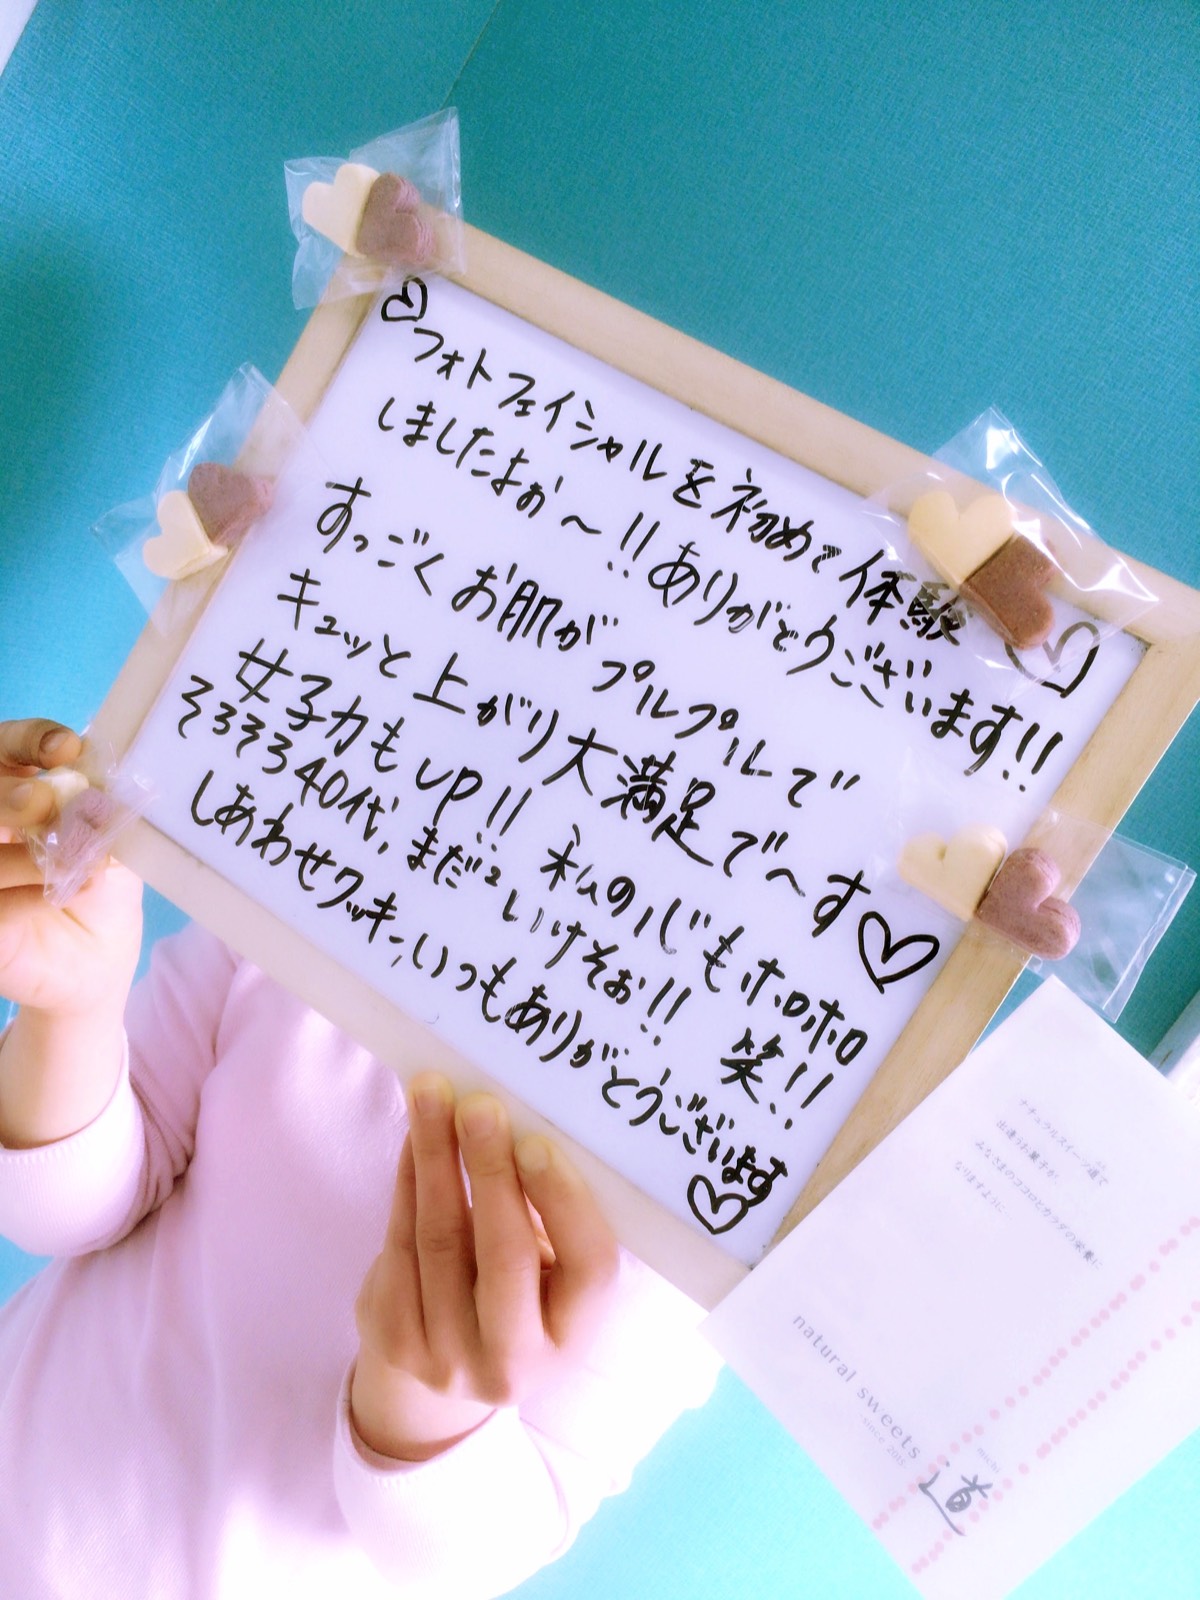 フォトフェイシャルを初めて体験
しましたよぉ～!!ありがとうございます!!
すっごくお肌がプルプルで
キュッと上がり大満足で〜す♡
女子力もup!!私の心もホロホロ
そろそろ40代、まだまだいけそぉ!!笑!!
しあわせクッキー、いつもありがとうございます♡
ナチュラルスイーツ道で
出逢うお菓子が、
みなさまのココロとカラダの栄養に
なりますように
natural sweets 道
michi
since 2015